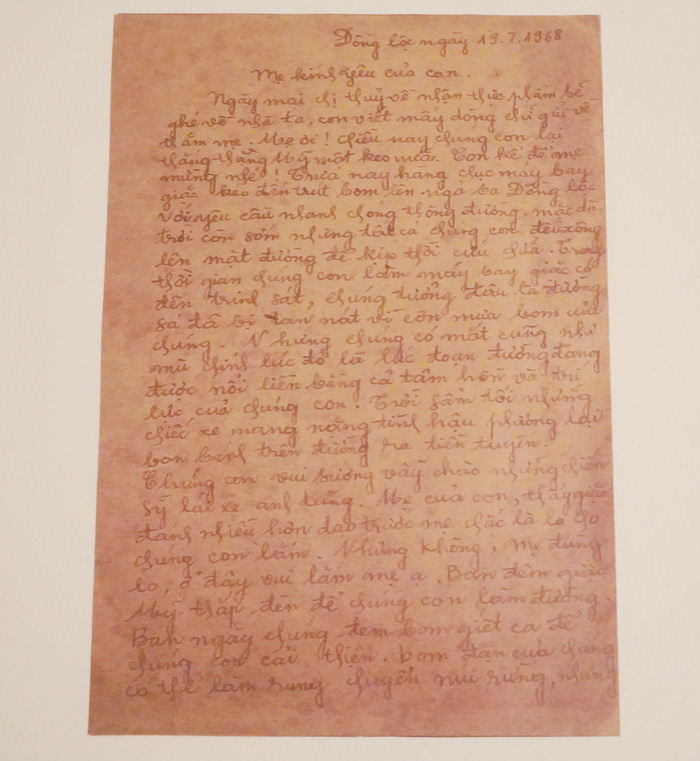 Đồng lộc ngày 19.7.1968
Mẹ kính yêu của con.
Ngày mai chị thuỷ về nhận thực phẩm sẽ
ghé về nhà ta, con viết mấy dòng chữ gửi về
thăm mẹ. Mẹ ơi! Chiều nay chúng con lại
thắng thằng Mỹ một keo nữa. Con kể để mẹ
mừng nhé! Trưa nay hàng chục máy bay
giặc kéo đến trút bom lên ngã ba Đồng lộc
với yêu cầu nhanh chóng thông đường. mặc dù
trời còn sớm nhưng tất cả chúng con đều xông
lên mặt đường để kịp thời cứu chữa. Trong
thời gian chúng con làm máy bay giặc có
đến trinh sát, chúng tưởng đâu là đường
sá đã bị tan nát vì cơn mưa bom của
chúng. Nhưng chúng có mắt cũng như
mù chính lúc đó là lúc đoạn đường đang
được nối liền bằng cả tâm hồn và trí
lực của chúng con. Trời sầm tối những
chiếc xe mang nặng tình hậu phương lại
bon bánh trên đường ra tiền tuyến.
Chúng con vui sướng vẫy chào những chiến
sỹ lái xe anh hùng. Mẹ của con, thấy giặc
đánh nhiều hơn dạo trước mẹ chắc là lo cho
chúng con lắm. Nhưng không, mẹ đừng
lo, ở đây vui lắm mẹ ạ. Ban đêm giặc
Mỹ thắp đèn để chúng con làm đường.
Ban ngày chúng đem bom giết cá để
chúng con cải thiện. bom đạn của chúng
có thể làm rung chuyển núi rừng, nhưng